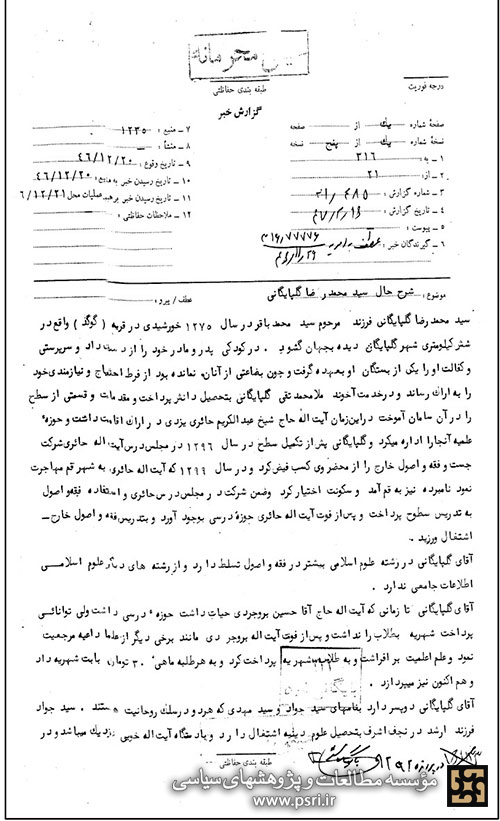 خیلی محرمانه
طبقه بندی حفاظتی
درجه فوریت
گزارش خبر
صفحه شماره یک از صفحه
نسخه شماره یک از پنج نسخه
۱ - به : ۳۱۶
۲ - از : ۲۱
۳ - شماره گزارش :
۴ - تاریخ گزارش :
۵ - پیوست :
۶ - گیرندگان خبر :
۷ - منبع : ۱۲۳۵
۸ - منشأ :
۹ - تاریخ وقوع : ۴۶/۱۲/۲۰
۱۰ - تاریخ رسیدن خبر به منبع : ۴۶/۱۲/۲۰
۱۱ - تاریخ رسیدن خبر برهبر عملیات محل ۶/۱۲/۲۱
۱۲ - ملاحظات حفاظتی :
موضوع : شرح حال سید محمد رضا گلپایگانی عطف / پیرو :
سید محمد رضا گلپایگانی فرزند مرحوم سید محمد باقر در سال ۱۲۷۵ خورشیدی در قریه (گوگد) واقع در
شش کیلومتری شهر گلپایگان دیده بجهان گشود . در کودکی پدر و مادر خود را از دست داد و سرپرستی
و کفالت او را یکی از بستگان او بعهده گرفت و چون بضاعتی از آنان نمانده بود از فرط احتیاج و نیازمندی خود
را به اراک رساند و در خدمت آخوند ملا محمد تقی گلپایگانی بتحصیل دانش پرداخت و مقدمات و قسمتی از سطح
را در آن سامان آموخت در این زمان آیت اله حاج شیخ عبدالکریم حائری یزدی در اراک اقامت داشت و حوزه
علمیه آنجا را اداره میکرد و گلپایگانی پس از تکمیل سطح در سال ۱۲۹۶ در مجلس درس آیت اله حائری شرکت
جست و فقه و اصول خارج را از محضر وی کسب فیض کرد و در سال ۱۲۹۹ که آیت اله حائری به شهر قم مهاجرت
نمود نامبرده نیز به قم آمد و سکونت اختیار کرد وضمن شرکت در مجلس درس حائری و استفاده فقه و اصول
به تدریس سطوح پرداخت و پس از فوت آیت اله حائری حوزه درسی بوجود آورد و بتدریس فقه و اصول خارج -
اشتغال ورزید .
آقای گلپایگانی در رشته علوم اسلامی بیشتر در فقه و اصول تسلط دارد و از رشته های دیگر علوم اسلامی
اطلاعات جامعی ندارد .
آقای گلپایگانی تا زمانی که آیت اله حاج آقا حسین بروجردی حیات داشت حوزه درسی داشت ولی توانائی
پرداخت شهریه بطلاب را نداشت و پس از فوت آیت اله بروجردی مانند برخی دیگر از علما داعیه مرجعیت
نمود و علم اعلمیت بر افراشت و به طلاب شهریه پرداخت کرد و به هر طلبه ماهی ۳۰ تومان بابت شهریه داد
و هم اکنون نیز میپردازد .
آقای گلپایگانی دو پسر دارد بنامهای سید جواد و سید مهدی که هر دو در سلک روحانیت هستند . سید جواد
فرزند ارشد در نجف اشرف بتحصیل علوم دینیه اشتغال دارد و با دستگاه آیت اله خوئی نزدیک میباشد و در
طبقه بندی حفاظتی
مؤسسه مطالعات و پژوهشهای سیاسی
www.psri.ir